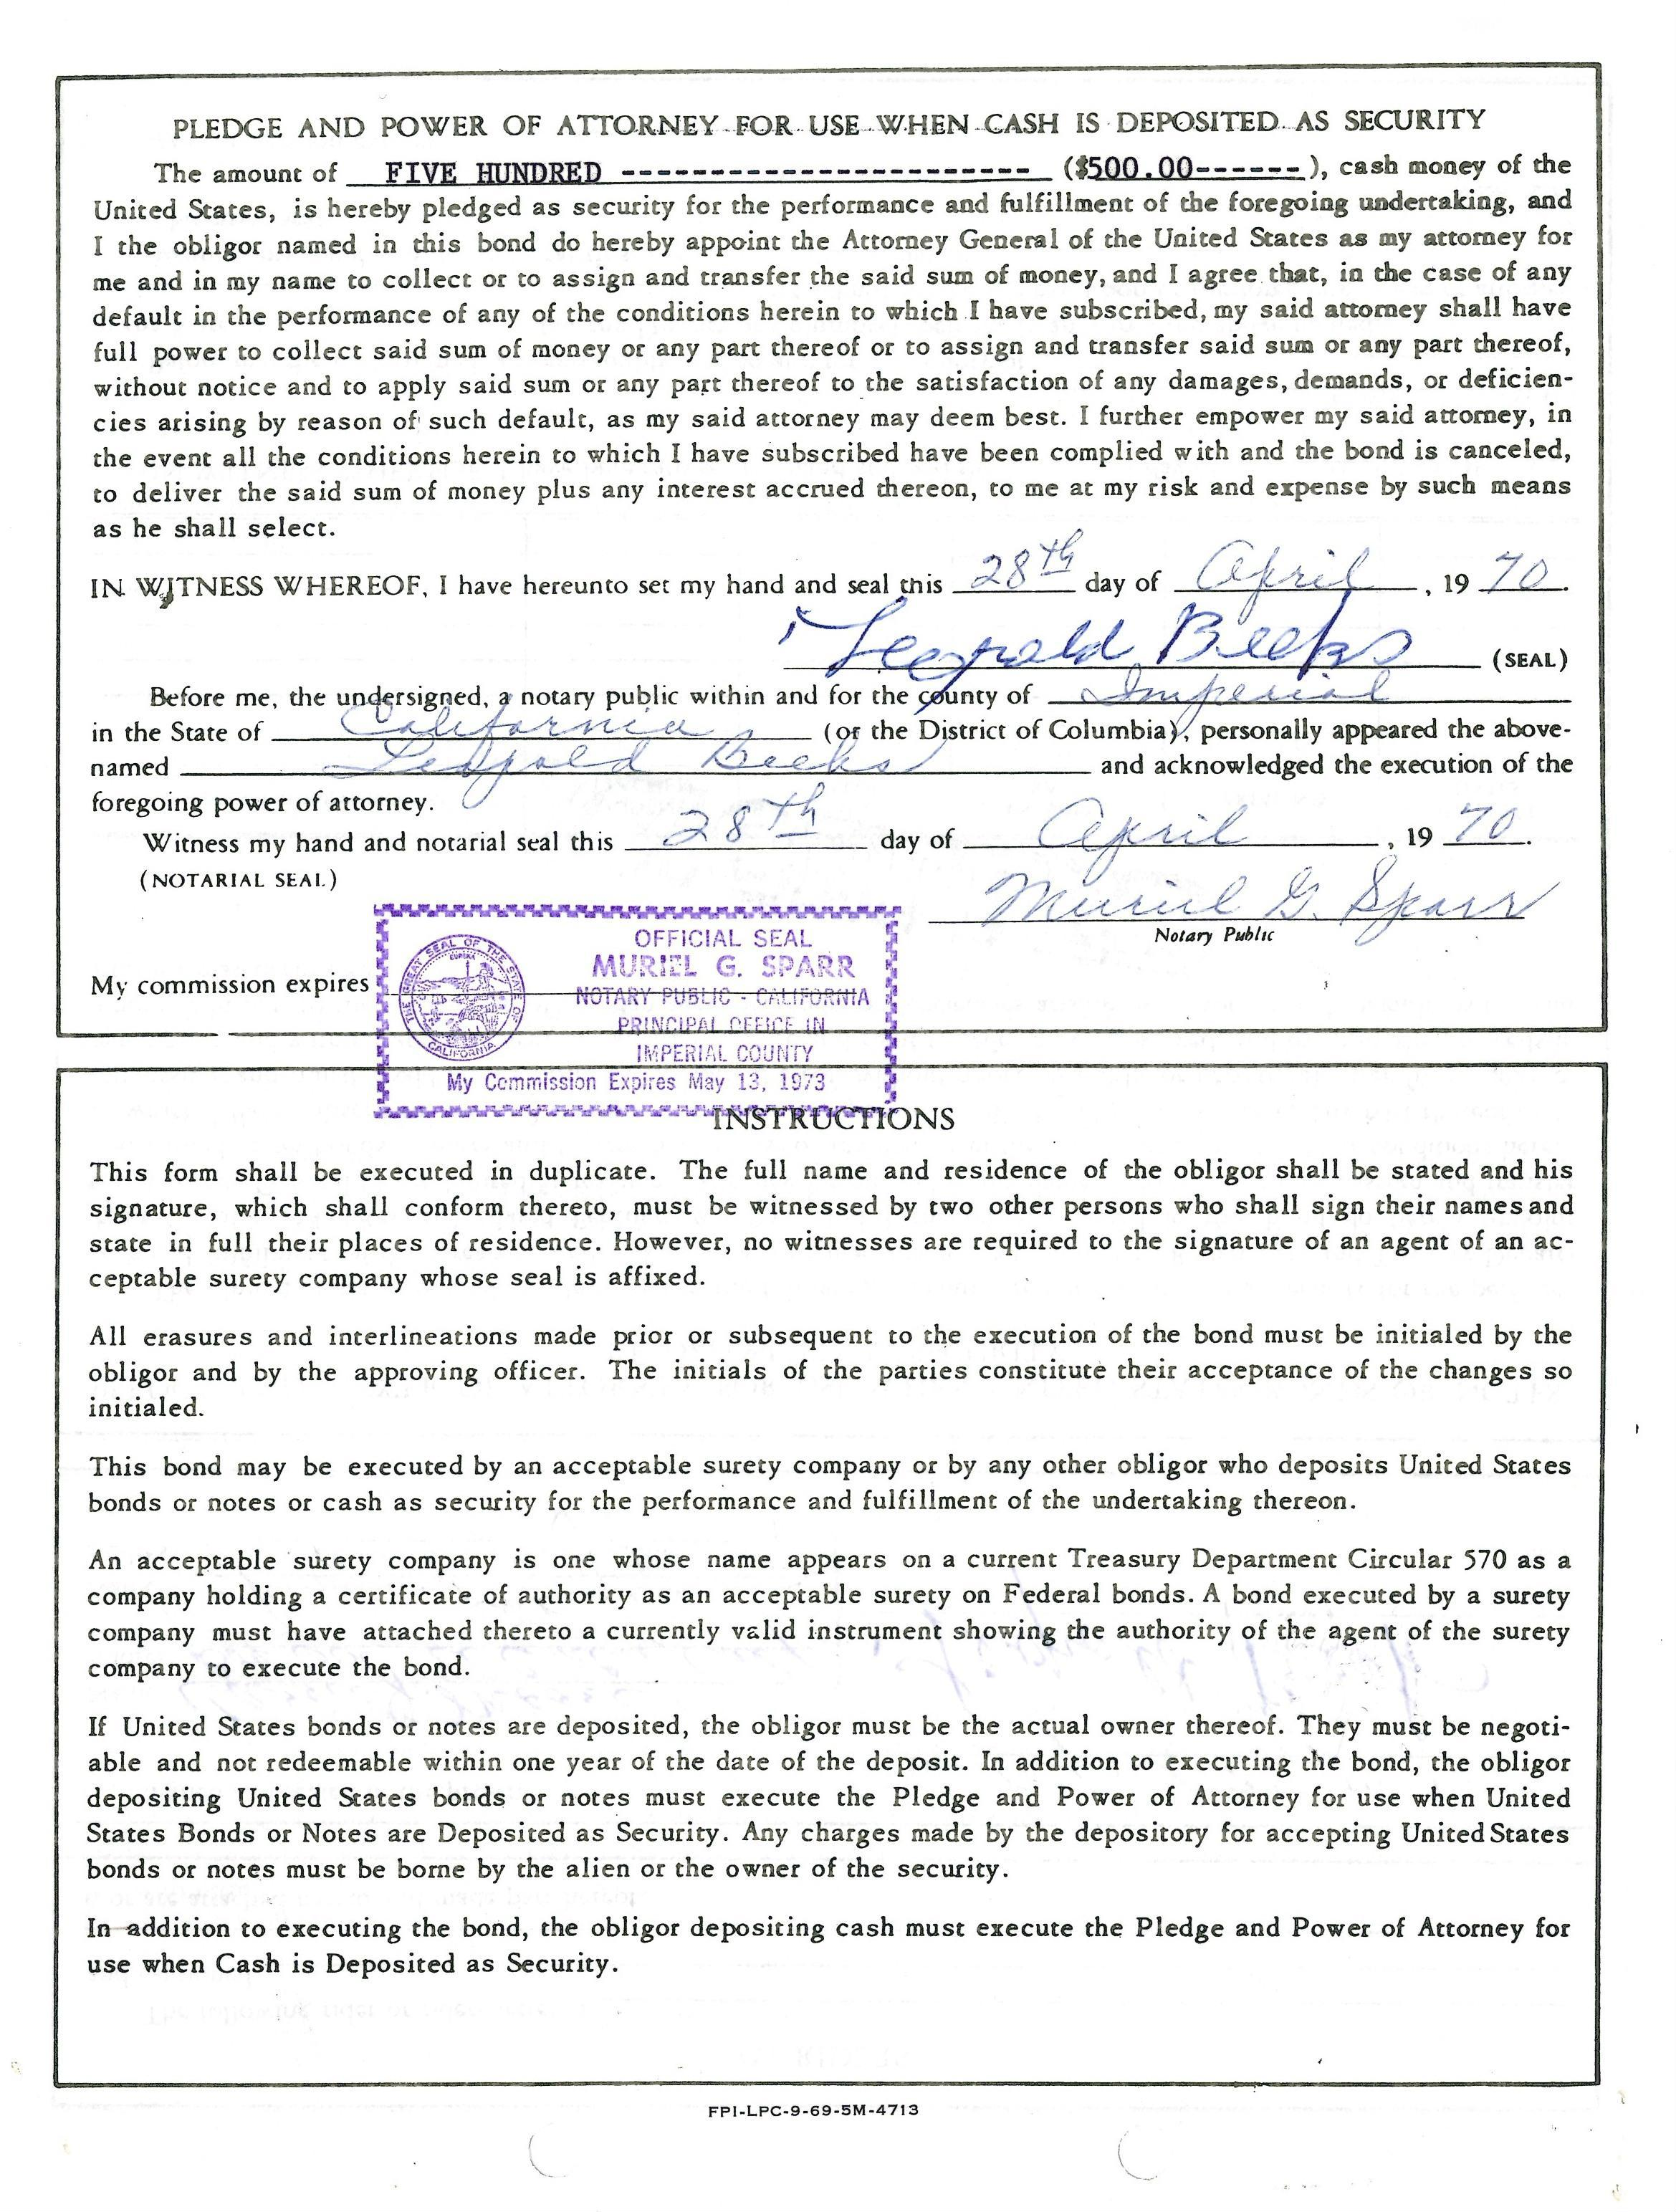 PLEDGE AND POWER OF ATTORNEY FOR USE WHEN CASH IS DEPOSITED AS SECURITY
The amount of FIVE HUNDRED ----------------------- ($500.00------), cash money of the
United States, is hereby pledged as security for the performance and fulfillment of the foregoing undertaking, and
I the obligor named in this bond do hereby appoint the Attorney General of the United States as my attorney for
me and in my name to collect or to assign and transfer the said sum of money, and I agree that, in the case of any
default in the performance of any of the conditions herein to which I have subscribed, my said attorney shall have
full power to collect said sum of money or any part thereof or to assign and transfer said sum or any part thereof,
without notice and to apply said sum or any part thereof to the satisfaction of any damages, demands, or deficien-
cies arising by reason of such default, as my said attorney may deem best. I further empower my said attorney, in
the event all the conditions herein to which I have subscribed have been complied with and the bond is canceled,
to deliver the said sum of money plus any interest accrued thereon, to me at my risk and expense by such means
as he shall select.
IN WITNESS WHEREOF, I have hereunto set my hand and seal this 28th day of April, 19 70.
Leopold Beeks (SEAL)
Before me, the undersigned, a notary public within and for the county of Imperial
in the State of California (or the District of Columbia), personally appeared the above-
named Leopold Beeks and acknowledged the execution of the
foregoing power of attorney.
Witness my hand and notarial seal this 28th day of April, 19 70.
(NOTARIAL SEAL)
Muriel G. Sparr
Notary Public
OFFICIAL SEAL
MURIEL G. SPARR
My commission expires
NOTARY PUBLIC - CALIFORNIA
PRINCIPAL OFFICE IN
IMPERIAL COUNTY
My Commission Expires May 13, 1973
THE GREAT SEAL OF THE STATE OF CALIFORNIA
EUREKA
INSTRUCTIONS
This form shall be executed in duplicate. The full name and residence of the obligor shall be stated and his
signature, which shall conform thereto, must be witnessed by two other persons who shall sign their names and
state in full their places of residence. However, no witnesses are required to the signature of an agent of an ac-
ceptable surety company whose seal is affixed.
All erasures and interlineations made prior or subsequent to the execution of the bond must be initialed by the
obligor and by the approving officer. The initials of the parties constitute their acceptance of the changes so
initialed.
This bond may be executed by an acceptable surety company or by any other obligor who deposits United States
bonds or notes or cash as security for the performance and fulfillment of the undertaking thereon.
An acceptable surety company is one whose name appears on a current Treasury Department Circular 570 as a
company holding a certificate of authority as an acceptable surety on Federal bonds. A bond executed by a surety
company must have attached thereto a currently valid instrument showing the authority of the agent of the surety
company to execute the bond.
If United States bonds or notes are deposited, the obligor must be the actual owner thereof. They must be negoti-
able and not redeemable within one year of the date of the deposit. In addition to executing the bond, the obligor
depositing United States bonds or notes must execute the Pledge and Power of Attorney for use when United
States Bonds or Notes are Deposited as Security. Any charges made by the depository for accepting United States
bonds or notes must be borne by the alien or the owner of the security.
In addition to executing the bond, the obligor depositing cash must execute the Pledge and Power of Attorney for
use when Cash is Deposited as Security.
FPI-LPC-9-69-5M-4713